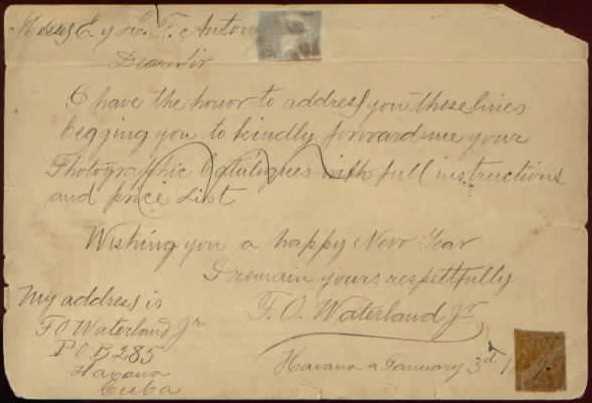 Dear Sir
I have the honor to address you these lines
begging you to kindly forward me your
Photographic Catalogues with full instructions
and price List
Wishing you a happy New Year
I remain yours respettfully
F. O. Waterland Jr
My address is
F O Waterland Jr
P O B 285
Havana
Cuba
Havana January 3d